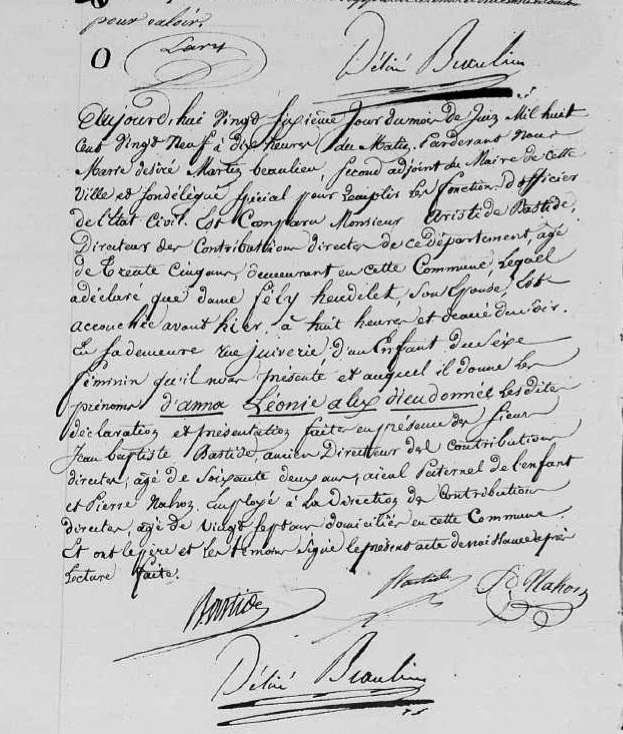 pour valoir.
O
Désiré Beaulieu
Aujourd,hui vingt sixième jour du mois de juin Mil huit
cent vingt neuf à dix heures du Matin. Pardevant Nous
Marie désiré Martin beaulieu, second adjoint du Maire de cette
Ville et sondélégué spécial pour remplir les fonctions d'officier
de l'état Civil. Est Comparu Monsieur Aristide Bastide,
Directeur des Contributions directes de ce Département, agé
de trente cinq ans, demeurant en cette Commune, lequel
adéclaré que dame fély heudelet, son épouse, Est
accouchée avant hier, à huit heures et demie du soir.
En sa demeure rue juiverie d'un Enfant du sexe
féminin qu'il nous présente et auquel il donne les
prénoms d'anna Léonie alex dieudonnée lesdites
déclaration et présentation faites en présence des sieurs
Jean baptiste Bastide, ancien Directeur des contributions
directes, agé de soixante deux ans, aieul Paternel de l'enfant
et Pierre Nahoz, Employé à la Direction des Contributions
directes, agé de vingt sept ans domiciliés en cette Commune.
Et ont le père et les témoins signé le présent acte de naissance après
Lecture faite.
Bastide Bastide P Nahoz
Désiré Beaulieu